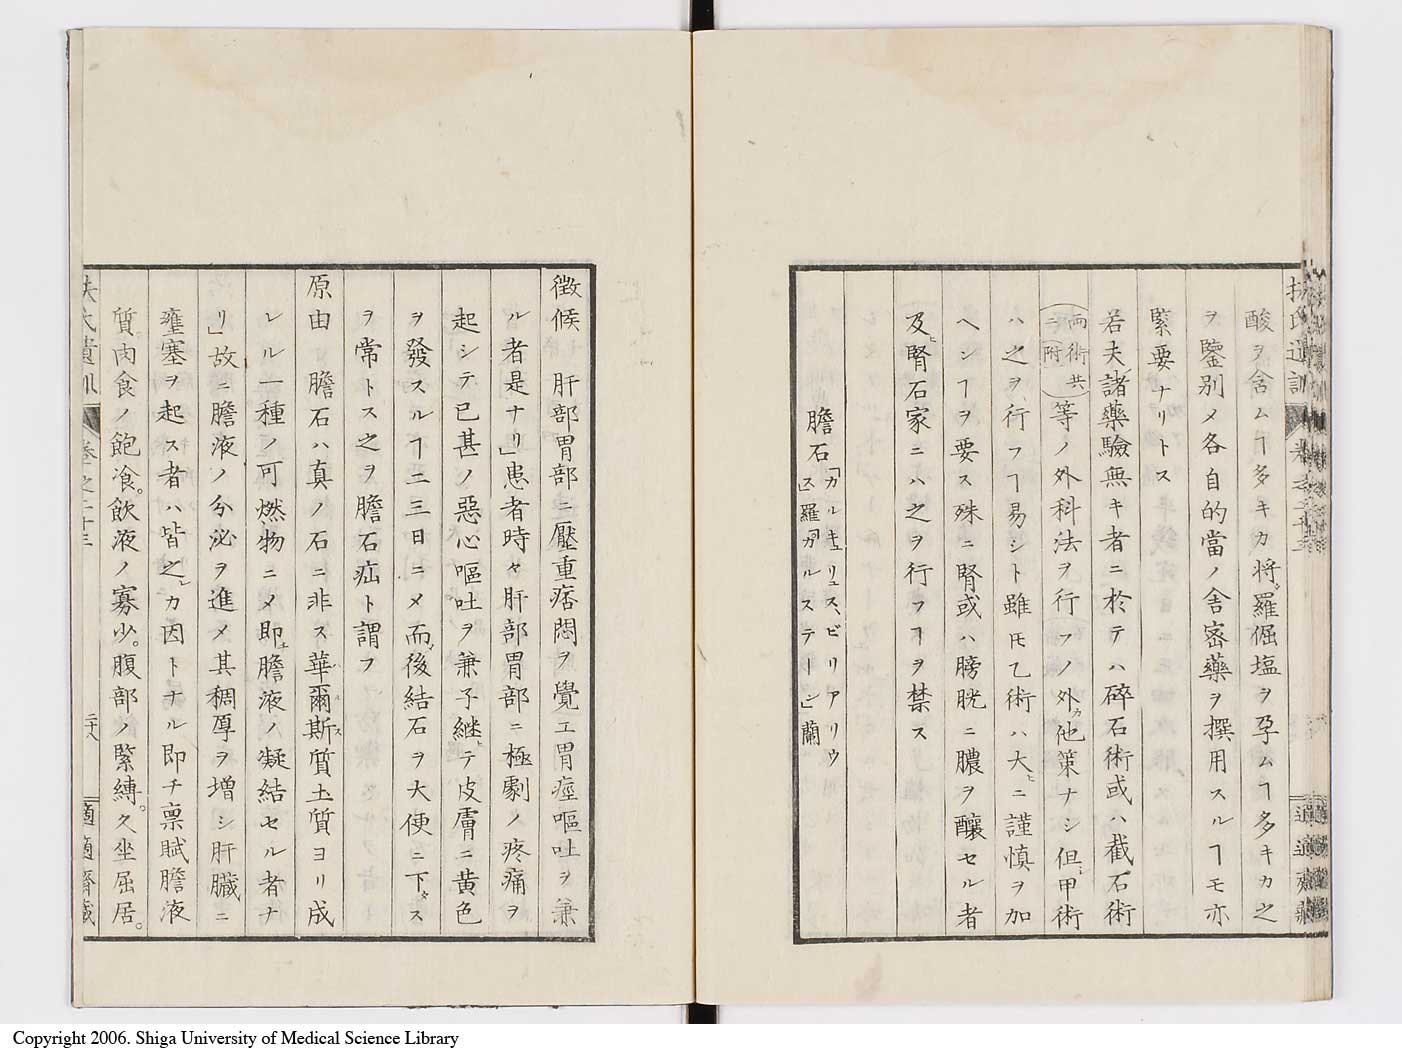 扶氏遺訓
卷之二十三
適適齋藏
酸ヲ含ムヿ多キカ将羅倔塩ヲ孕ムヿ多キカ之
ヲ鑒別メ各自的當ノ舍密藥ヲ撰用スルヿモ亦
緊要ナリトス
若夫諸藥驗無キ者ニ於テハ碎石術或ハ截石術
両術共ニ附
等ノ外科法ヲ行フノ外他策ナシ但甲術
ハ之ヲ行フヿ易シト雖𪜈乙術ハ大ニ謹慎ヲ加
ヘシヿヲ要ス殊ニ腎或ハ膀胱ニ膿ヲ釀セル者
及腎石家ニハ之ヲ行フヿヲ禁ス
膽石
「カルキュリュス、ビリアリウ
ス」羅「ガルステーン」蘭
徴候 肝部胃部ニ壓重痞悶ヲ覺エ胃痙嘔吐ヲ兼
ル者是ナリ」患者時々肝部胃部ニ極劇ノ疼痛ヲ
起シテ已甚ノ惡心嘔吐ヲ兼子継テ皮膚ニ黄色
ヲ發スルヿ二三日ニメ而後結石ヲ大便ニ下ス
ヲ常トス之ヲ膽石疝ト謂フ
原由 膽石ハ真ノ石ニ非ス華爾斯質土質ヨリ成
レル一種ノ可燃物ニメ即膽液ノ凝結セル者ナ
リ」故ニ膽液ノ分泌ヲ進メ其稠厚ヲ増シ肝臓ニ
壅塞ヲ起ス者ハ皆之カ因トナル即チ禀賦膽液
質。肉食ノ飽飡。飲液ノ寡少。腹部ノ緊縛。久坐屈居。
扶氏遺訓
卷之二十三
二十八
適適齋藏
Copyright 2006. Shiga University of Medical Science Library